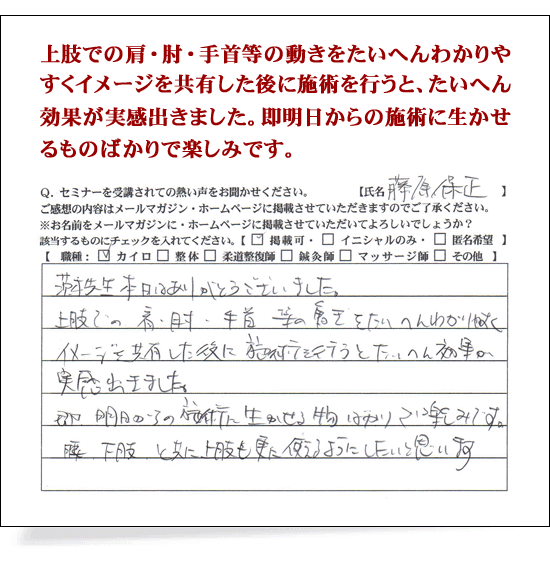 上肢での肩・肘・手首等の動きをたいへんわかりや
すくイメージを共有した後に施術を行うと、たいへん
効果が実感出きました。即明日からの施術に生かせ
るものばかりで楽しみです。
Q. セミナーを受講されての熱い声をお聞かせください。 【氏名 藤原保正 】
ご感想の内容はメールマガジン・ホームページに掲載させていただきますのでご了承ください。
※お名前をメールマガジンに・ホームページに掲載させていただいてよろしいでしょうか？
該当するものにチェックを入れてください。【 ☑ 掲載可・ □ イニシャルのみ・ □ 匿名希望 】
【 職種： ☑ カイロ □ 整体 □ 柔道整復師 □ 鍼灸師 □ マッサージ師 □ その他 】
先生本日はありがとうございました。
上肢での 肩・肘・手首 等の動きをたいへんわかりやすく
イメージを共有した後に施術を行うとたいへん効果が
実感出きました。
即 明日からの施術に生かせる物ばかりで楽しみです。
腰 下肢 と共に上肢も更に使えるようにしたいと思います